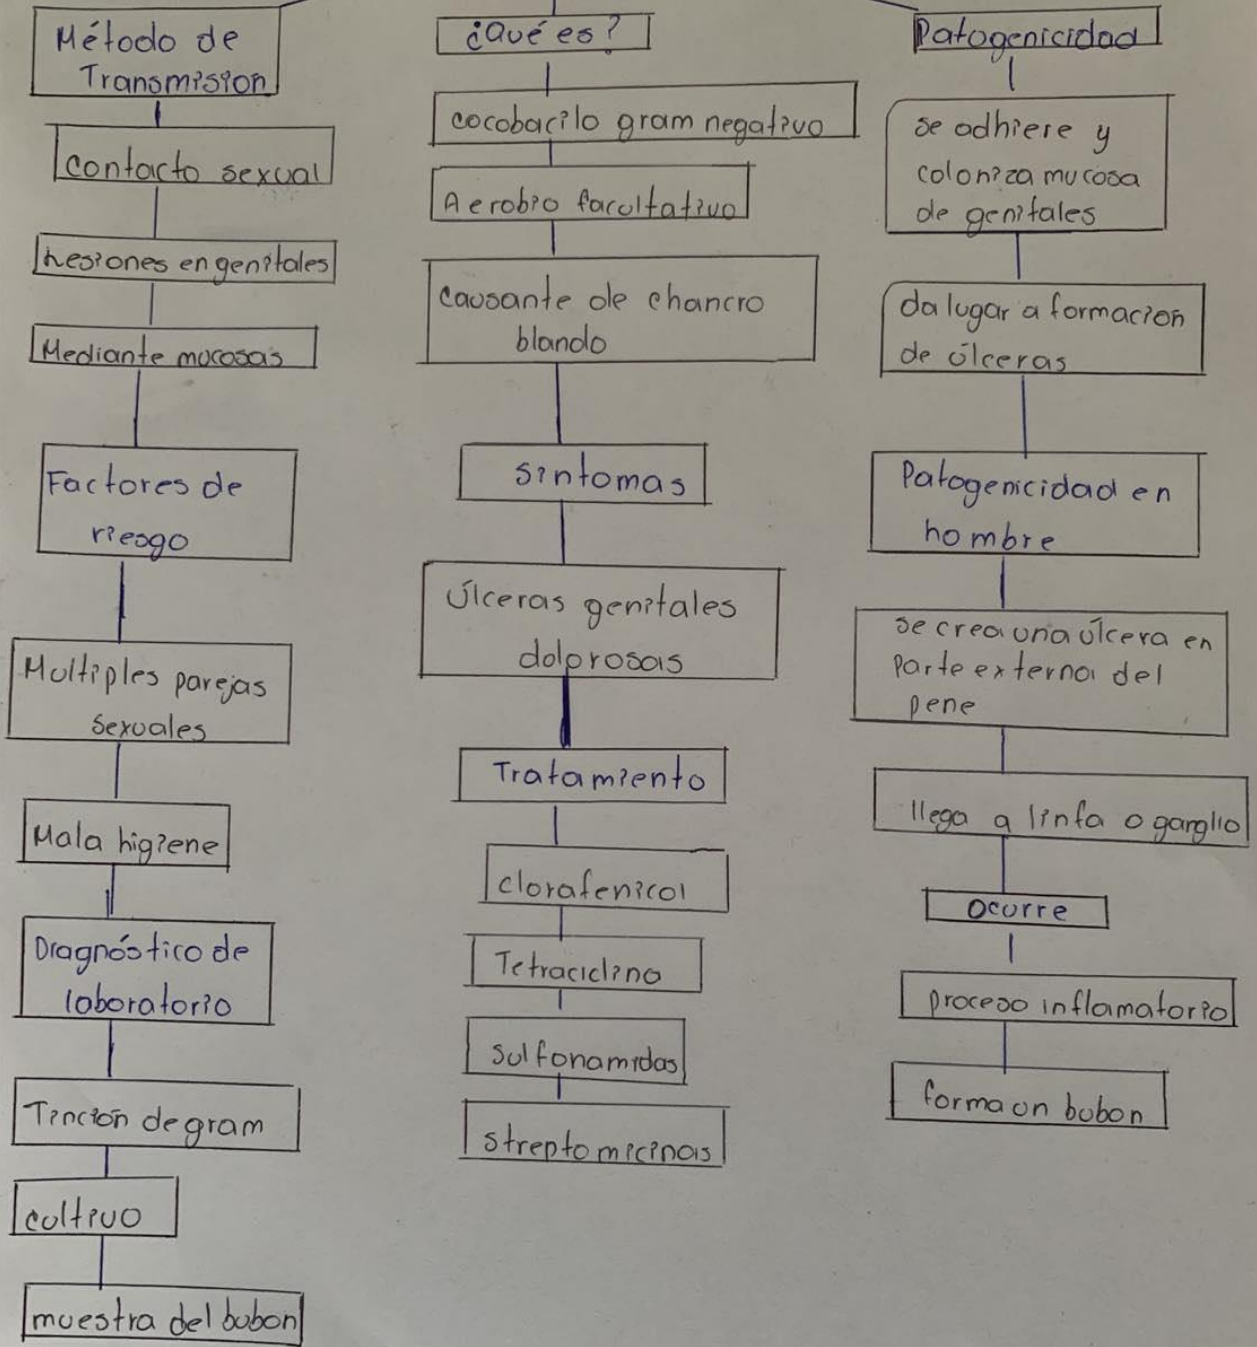 Método de
Transmision
Contacto sexual
Lesiones en genitales
Mediante mucosas
Factores de
riesgo
Multiples parejas
sexuales
Mala higiene
Diagnóstico de
laboratorio
Tinción de gram
cultivo
muestra del bubon
¿Qué es?
cocobacilo gram negativo
Aerobio facultativo
Causante de chancro
blando
Sintomas
Úlceras genitales
dolorosas
Tratamiento
clorafenicol
Tetraciclina
Sulfonamidas
Streptomicinas
Patogenicidad
se adhiere y
coloniza mucosa
de genitales
da lugar a formacion
de úlceras
Patogenicidad en
hombre
se crea una úlcera en
parte externa del
pene
llega a linfa o ganglio
Ocurre
proceso inflamatorio
forma un bubon